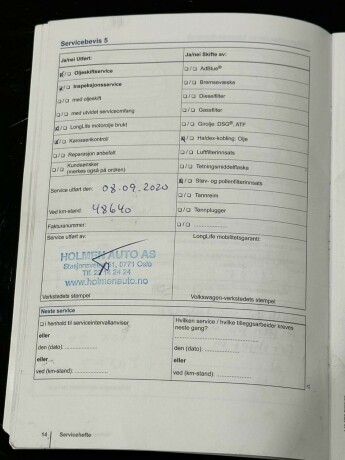 Servicebevis 5
Ja/nei Utført:
Ja/nei Skifte av:
☑/☐ Oljeskiftservice
☐/☐ AdBlue®
☑/☐ Inspeksjonsservice
☐/☐ Bremsevæske
☐/☐ med oljeskift
☐/☐ Dieselfilter
☐/☐ med utvidet serviceomfang
☐/☐ Gassfilter
☑/☐ LongLife motorolje brukt
☐/☐ Girolje: DSG®, ATF
☑/☐ Karosserikontroll
☑/☐ Haldex-kobling: Olje
☐/☐ Reparasjon anbefalt
☐/☐ Luftfilterinnsats
☐/☐ Kundeønsker
(merkes også på ordren)
☐/☐ Tetningsmiddelflaske
☑/☐ Støv- og pollenfilterinnsats
Service utført den: 08.09.2020
☐/☐ Tannreim
Ved km-stand: 48640
☐/☐ Tennplugger
Fakturanummer:
☐/☐
Service utført av:
LongLife mobilitetsgaranti:
HOLMEN AUTO AS
0771 Oslo
www.holmenauto.no
Verkstedets stempel
Volkswagen-verkstedets stempel
Neste service
☐ i henhold til serviceintervallanviser
Hvilken service / hvilke tilleggsarbeider kreves
neste gang?
eller
eller
den (dato):
den (dato):
eller
eller
ved (km-stand):
ved (km-stand):
14 Servicehefte